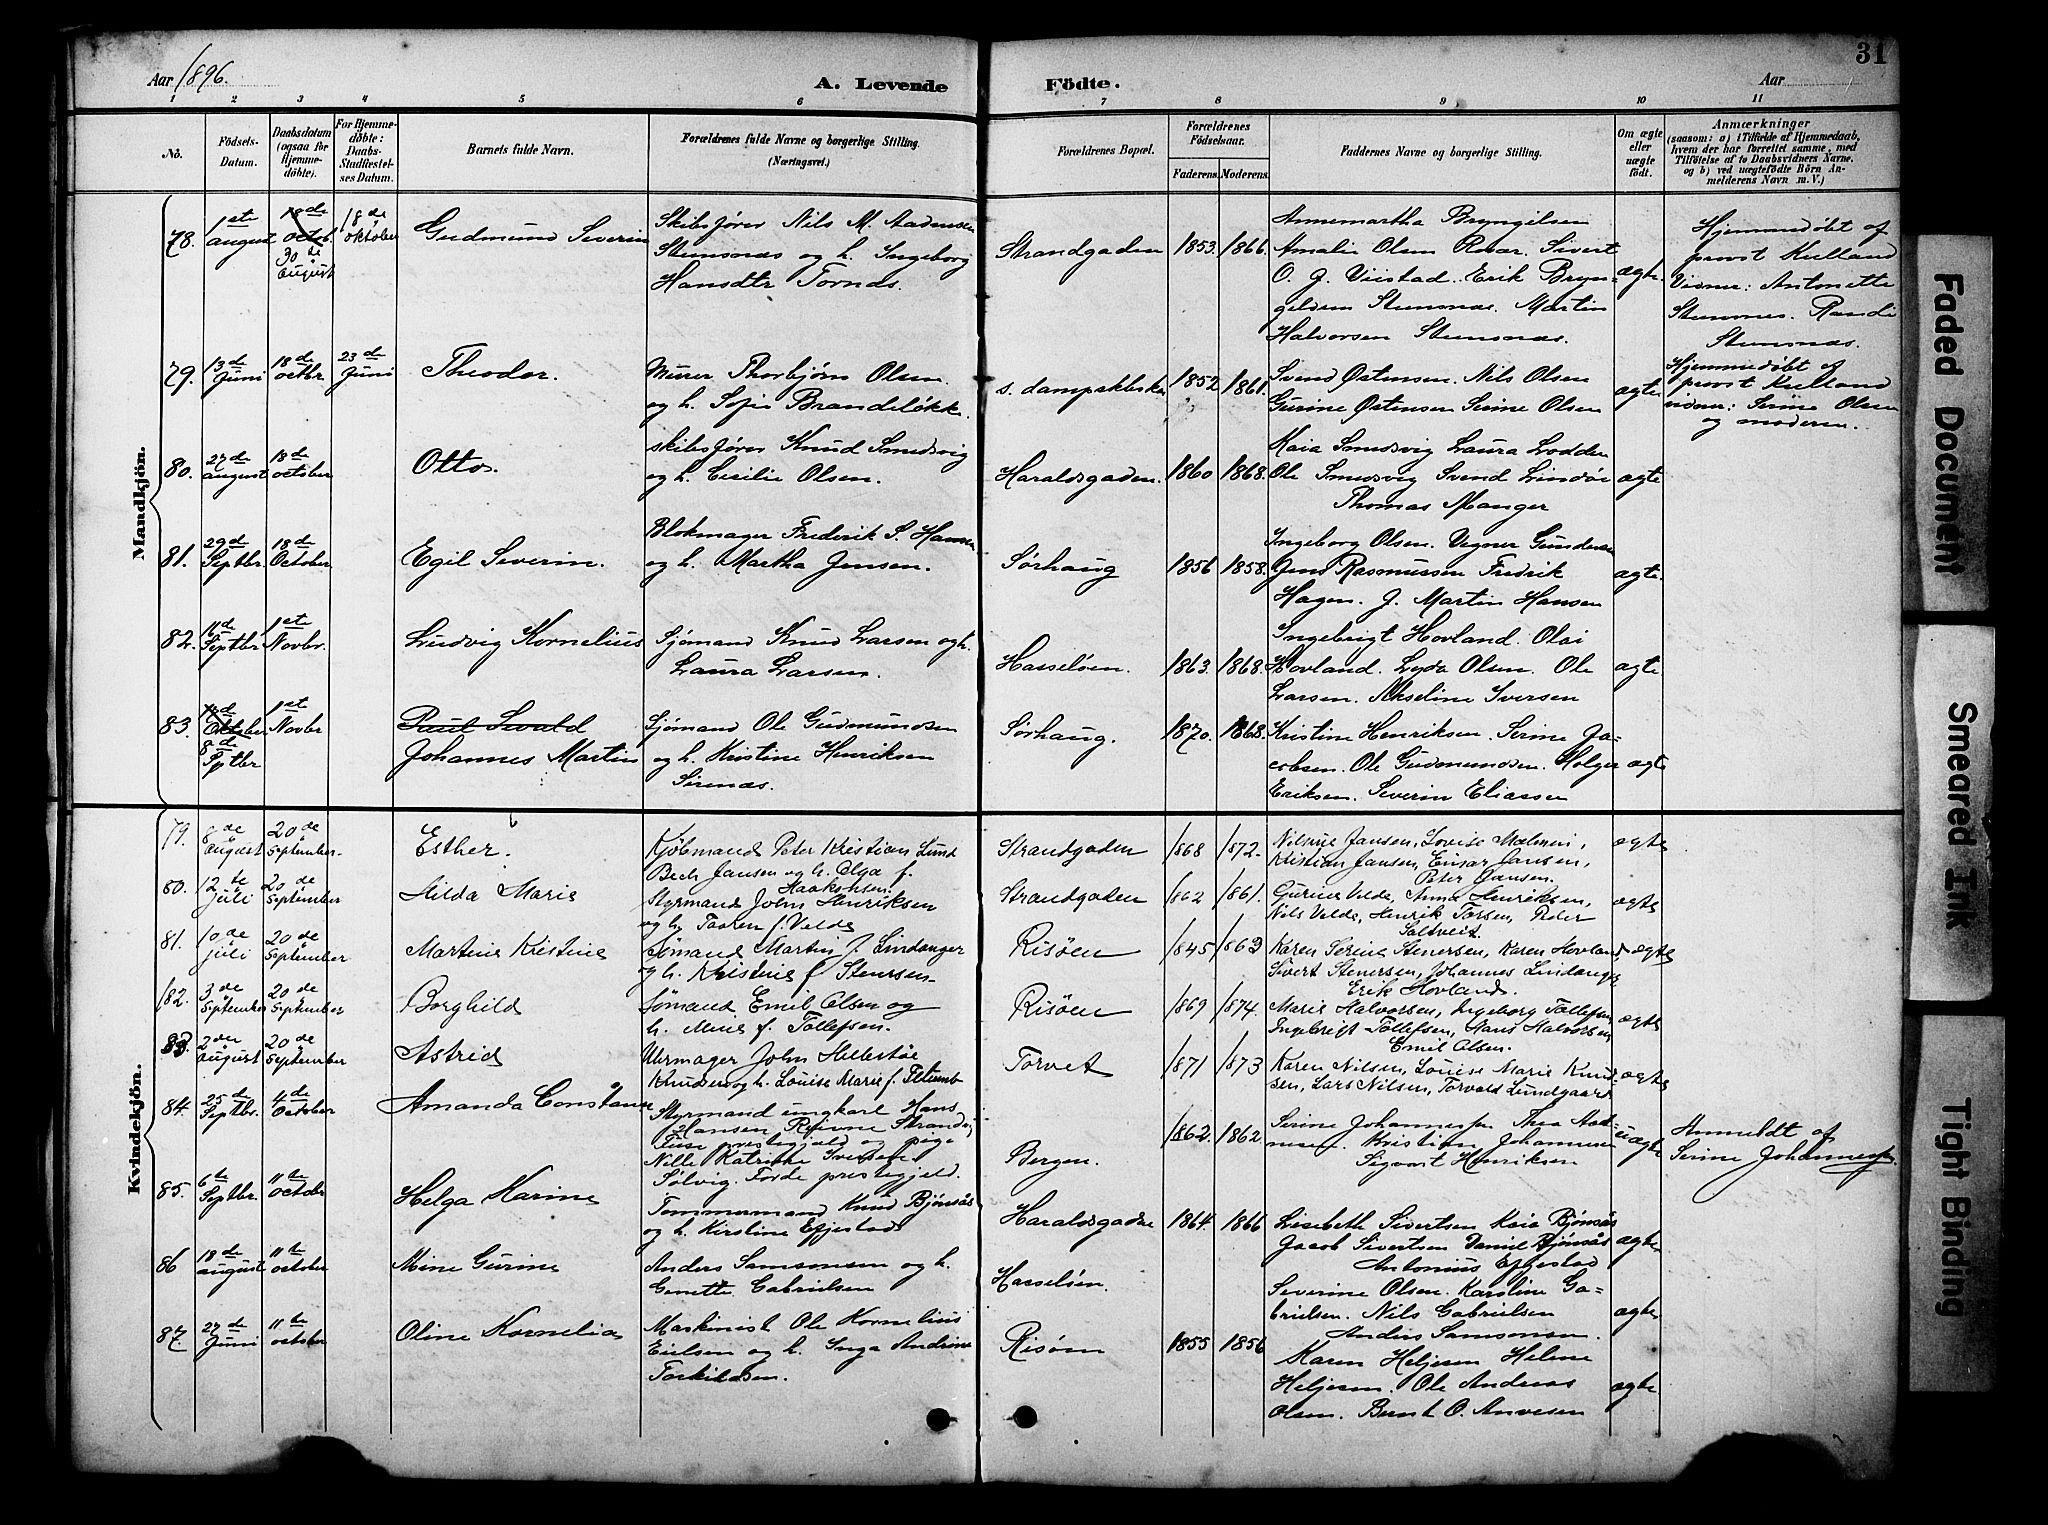 Aar 1896.
A. Levende
Födte.
Aar
31
1 2 3 4 5 6 7 8 9 10 11
No.
Födsels-Datum.
Daabsdatum (ogsaa for Hjemmedöbte).
For Hjemmedöbte: Daabs-Stadfestelses Datum.
Barnets fulde Navn.
Forældrenes fulde Navne og borgerlige Stilling.
(Næringsvei.)
Forældrenes Bopæl.
Forældrenes Födselsaar.
Faderens. Moderens.
Faddernes Navne og borgerlige Stilling.
Om ægte eller uægte födt.
Anmærkninger
(saasom: a) i Tilfælde af Hjemmedaab, hvem der har forrettet samme, med Tilföielse af to Daabsvidners Navne, og b) ved uægtefödte Börn Anmelderens Navn m. V.)
Mandkjön.
78. 1ste august 18de octob. 30te august 18de oktober Gudmund Severin
Skibsfører Nils M. Aadensen
Stemsnæs og h. Ingeborg
Hansdtr Tornæs.
Strandgaden 1853. 1866.
Annemartha Bryngelsen
Amalie Olsen Sivert
O. J. Viestad. Erik Bryn-
geldsen Stemsnæs. Martin
Halvorsen Stemsnæs.
ægte
Hjemmedøbt af
provst Kulland
Vidner: Antonette
Stemnes. Randi
Stemsnæs.
79. 13de Juni 18de octbr 23de Juni Theodor.
Murer Thorbjørn Olsen
og h. Sofie Brandeløkk.
1852 1861.
Svend Østensen. Nils Olsen
Gurine Østensen Serine Olsen
ægte
Hjemmedøbt af
provst Kulland
vidner: Serine Olsen
og moderen.
80. 27de august 18de october Otto.
Skibsfører Knud Smedsvig
og h. Cecilie Olsen.
Haraldsgaden. 1860 1868.
Kaia Smedsvig Laura Lodden
Ole Smedsvig Svend Lindøe
Thomas Manger
ægte
81. 29de Septbr. 18de October Egil Severin.
Blokmager Frederik S. Hansen
og h. Martha Jensen.
Sørhaug 1856 1858.
Ingeborg Olsen. Vegner Gundersen
Jens Rasmussen Fredrik
Hagen. J. Martin Hansen
ægte.
82. 11de Septbr 1ste Novbr. Ludvig Kornelius
Sjømand Knud Larsen og h.
Laura Larsen.
Hasseløen. 1863. 1868.
Ingebrigt Hovland. Olai
Hovland. Lyda Olsen. Ole
Larsen. Akseline Iversen
ægte
83. Oktober 8de Sptbr 1ste Novbr Paul Sivald
Johannes Martin
Sjømand Ole Gudmundsen
og h. Kristine Henriksen
Sirenæs.
Sørhaug. 1870. 1868.
Kristine Henriksen. Serine Ja-
cobsen. Ole Gudmundsen. Holger
Eriksen. Severin Eliassen
ægte
Kvindekjön.
79. 8de august 20de September Esther.
Kjøbmand Peter Kristian Lund
Bech Jansen og h. Olga f.
Haakonsen.
Strandgaden 1868 1872.
Nilsine Jansen, Lovise Malmin,
Kristian Jansen, Einar Jansen,
Peter Jansen.
ægte
80. 12te juli 20de September Hilda Marie
Styrmand John Henriksen
og h. Taaren f. Velde
Strandgaden 1862 1861.
Gurine Velde, Anna Henriksen,
Nils Velde, Henrik Torsen, Peter
Saltveit.
ægte
81. 10de juli 20de September Martine Kristine
Sømand Martin J. Lindanger
og h. Kristine f. Stenersen.
Risøen 1845 1863
Karen Serine Stenersen, Karen Hovland
Sivert Stenersen, Johannes Lindanger
Erik Hovland.
ægte
82. 3de September 20de September Borghild
Sømand Emil Olsen og
h. Mine f. Tollefsen.
Risøen 1869 1874.
Marie Halvorsen, Ingeborg Tollefsen,
Ingebrigt Tollefsen, Hans Halvorsen
Emil Olsen.
ægte
83. 2den august 20de September Astrid
Urmager John Hellestøe
Knudsen og h. Louise Marie f.
Torvet 1871 1873
Karen Nilsen, Louise Marie Knud-
sen, Lars Nilsen, Torvald Lundgaard
ægte
84. 25de Septbr. 4de October Amanda Constanse
Styrmand ungkarl Hans
Hansen
præstegjeld og pige
Nille Katrine Iversen
Sølvig. Førde prestegjeld.
Bergen. 1862. 1862
Serine Johannesen Thea
Kristian Johannesen
Sigvart Henriksen
uægte
Anmeldt af
Serine Johannesen.
85. 6te Septbr. 11te october Helga Karine
Tømmermand Knud Bjønsås
og h. Kirstine Efjestad
Haraldsgaden 1864. 1866
Lisebeth Sivertsen Kaia Bjønsås
Jacob Sivertsen Daniel Bjønsås
Antonius Efjestad
ægte
86 18de august 11te october Mine Gurine
Anders Samsonsen og h.
Genette Gabrielsen
Hasseløen.
Severine Olsen. Karoline Ga-
brielsen. Nils Gabrielsen
Anders Samsonsen.
ægte
87. 27de Juni 11te october Oline Kornelia
Maskinist Ole Kornelius
Eielsen og h. Inga Andrine
Torkildsen.
Risøen 1855 1856
Karen Heljesen Helene
Heljesen. Ole Andreas
Olsen. Bernt O. Anvesen
ægte
Faded Document
Smeared Ink
Tight Binding